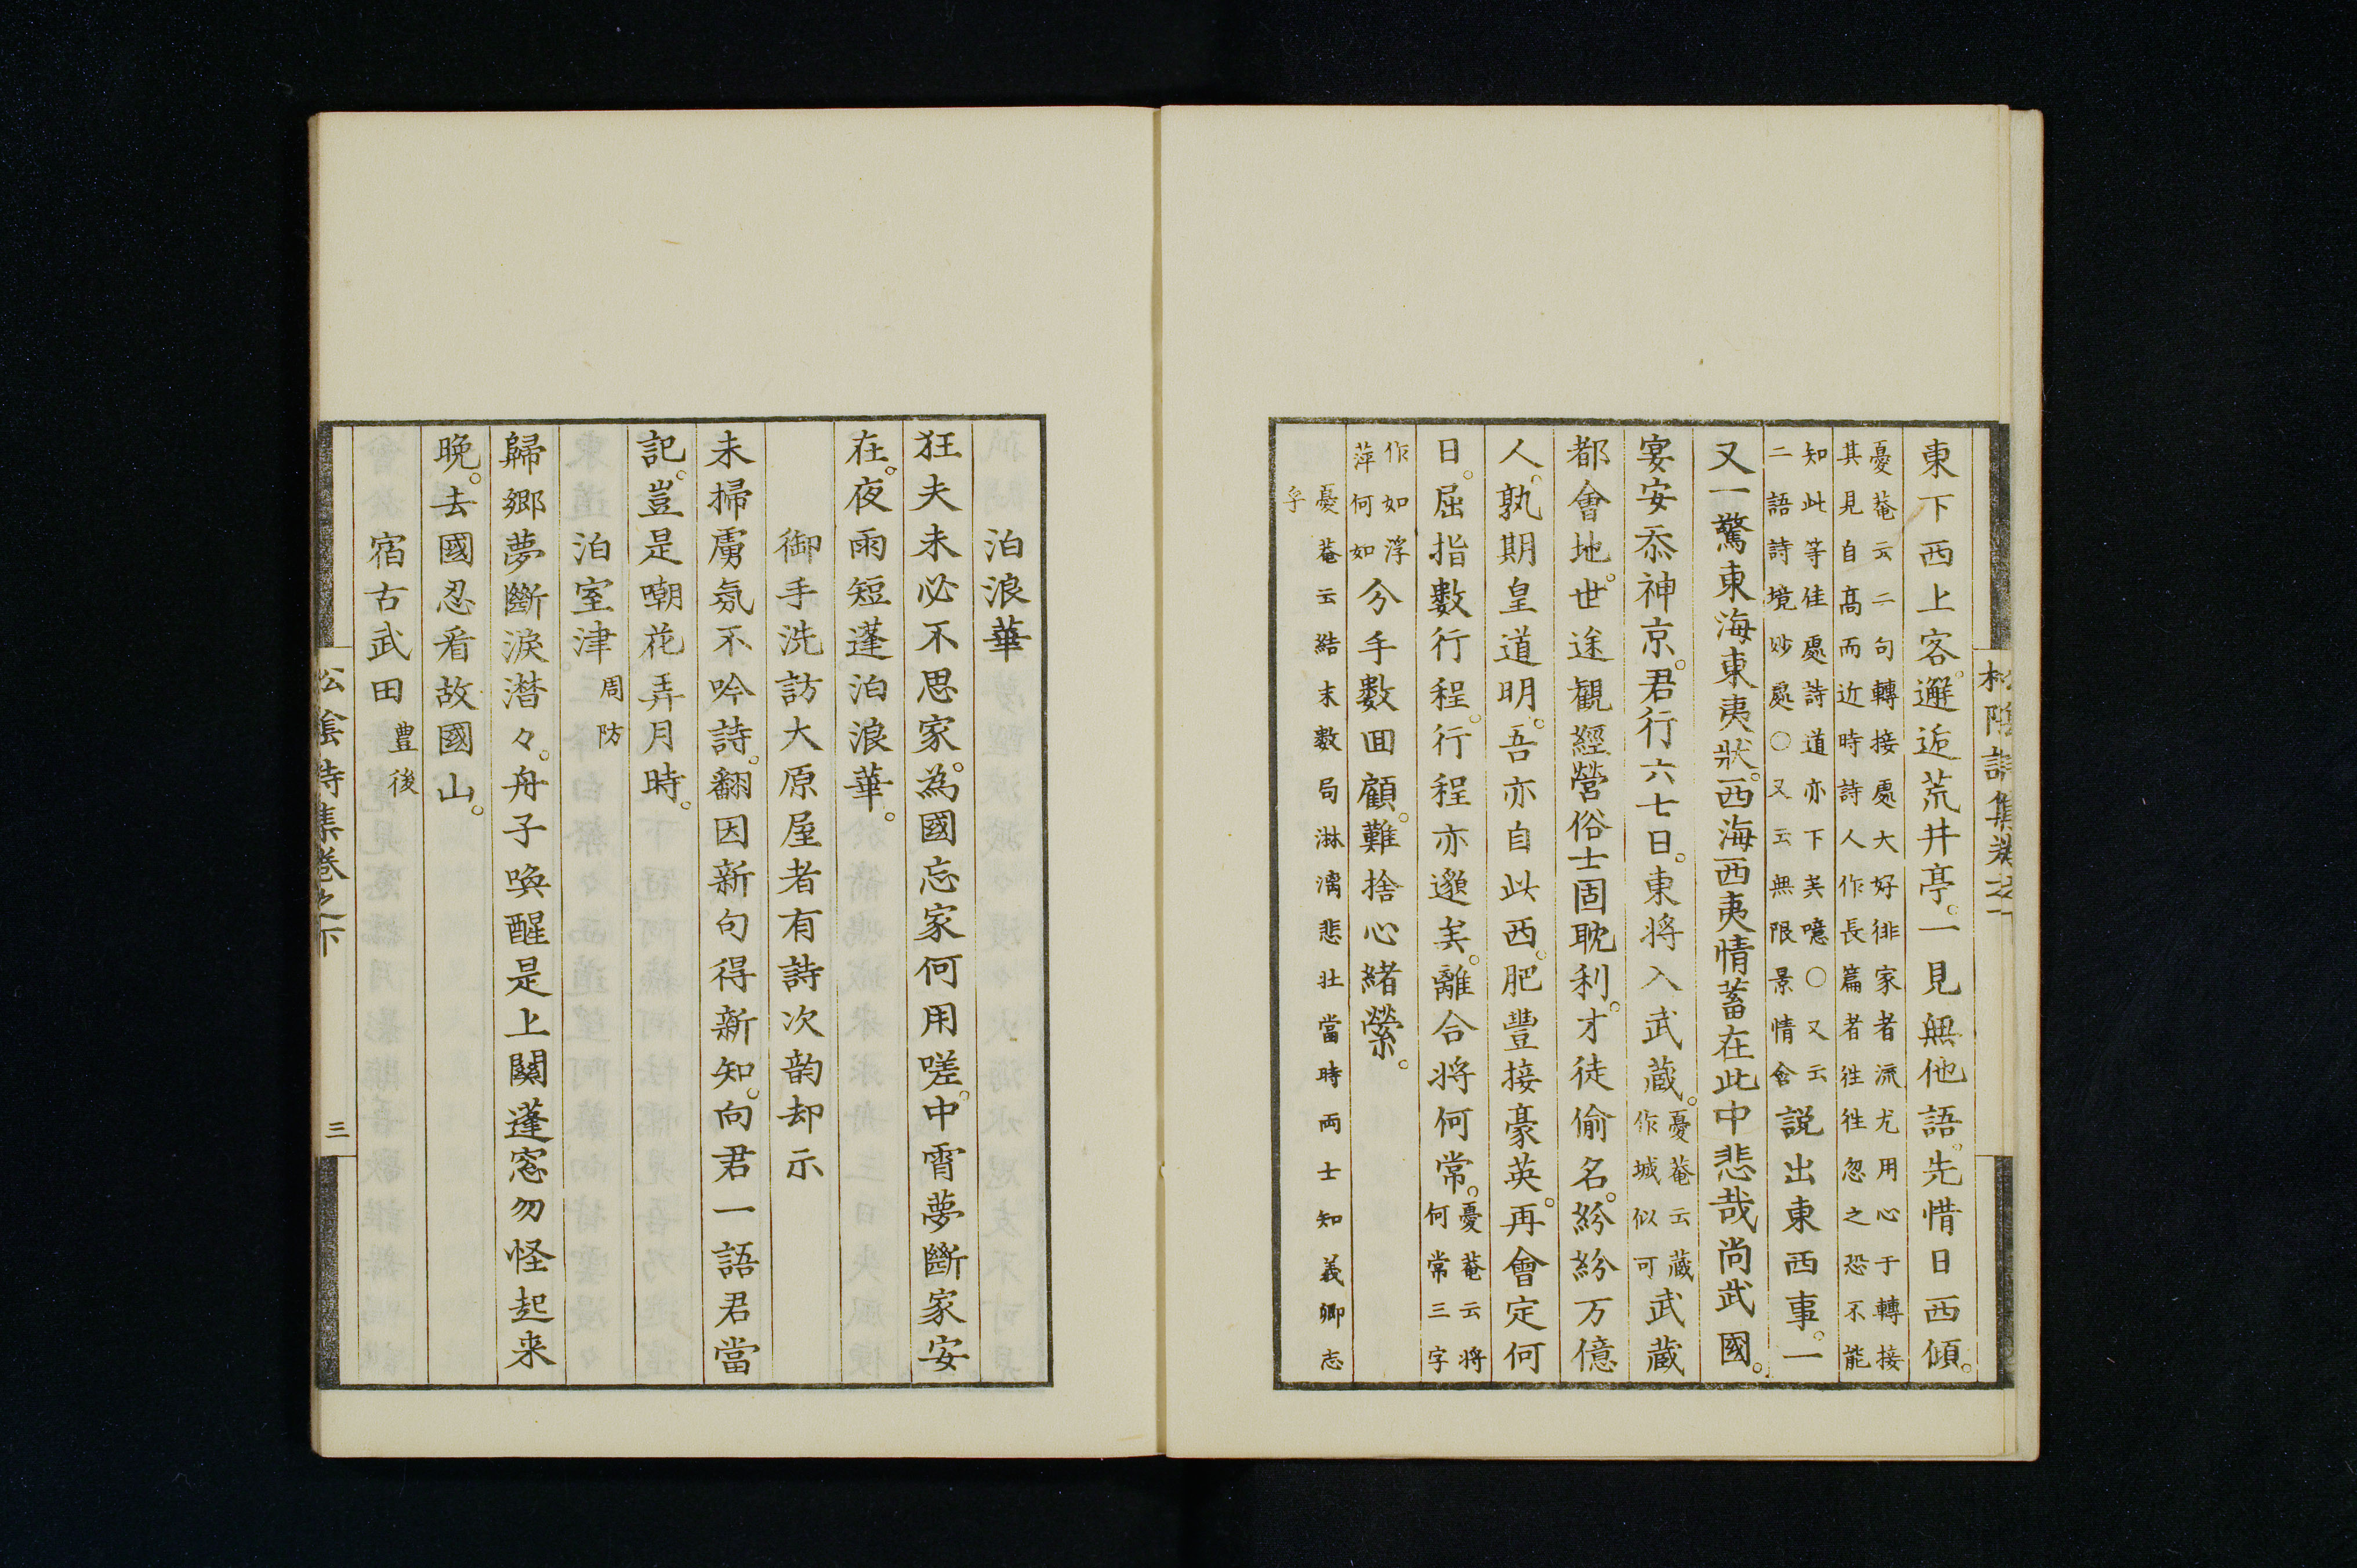 東下西上客。邂逅荒井亭。一見無他語。先惜日西傾。
憂菴云二句轉接處大好徘家者流尤用心于轉接
其見自高而近時詩人作長篇者徃徃忽之恐不能
知此等佳處詩道亦下矣噫〇又云
二語詩境妙處〇又云無限景情會
説出東西事。一
又一驚東海東夷狀。西海西夷情蓄在此中悲哉尚武國。
宴安忝神京。君行六七日。東将入武蔵。
憂菴云蔵
作城似可
武蔵
都會地。世途観經營俗士固耽利。才徒偷名。紛紛万億
人。孰期皇道明。吾亦自此西。肥豐接豪英。再會定何
日。屈指數行程。行程亦邈矣。離合将何常。
憂菴云将
何常三字
作如浮
萍何如
分手數囬顧。難捨心緒縈。
憂菴云結末数局淋漓悲壮當時両士知義卿志
乎
松陰詩集巻之下
泊浪華
狂夫未必不思家。為國忘家何用嗟。中霄夢斷家安
在。夜雨短蓬泊浪華。
御手洗訪大原屋者有詩次韵却示
未掃虜氛不吟詩。翻因新句得新知。向君一語君當
記。豈是嘲花弄月時。
泊室津 周防
歸郷夢斷淚潜々。舟子喚醒是上關蓬窓勿怪起来
晩。去國忍看故國山。
宿古武田 豊後
松陰詩集巻之下
三